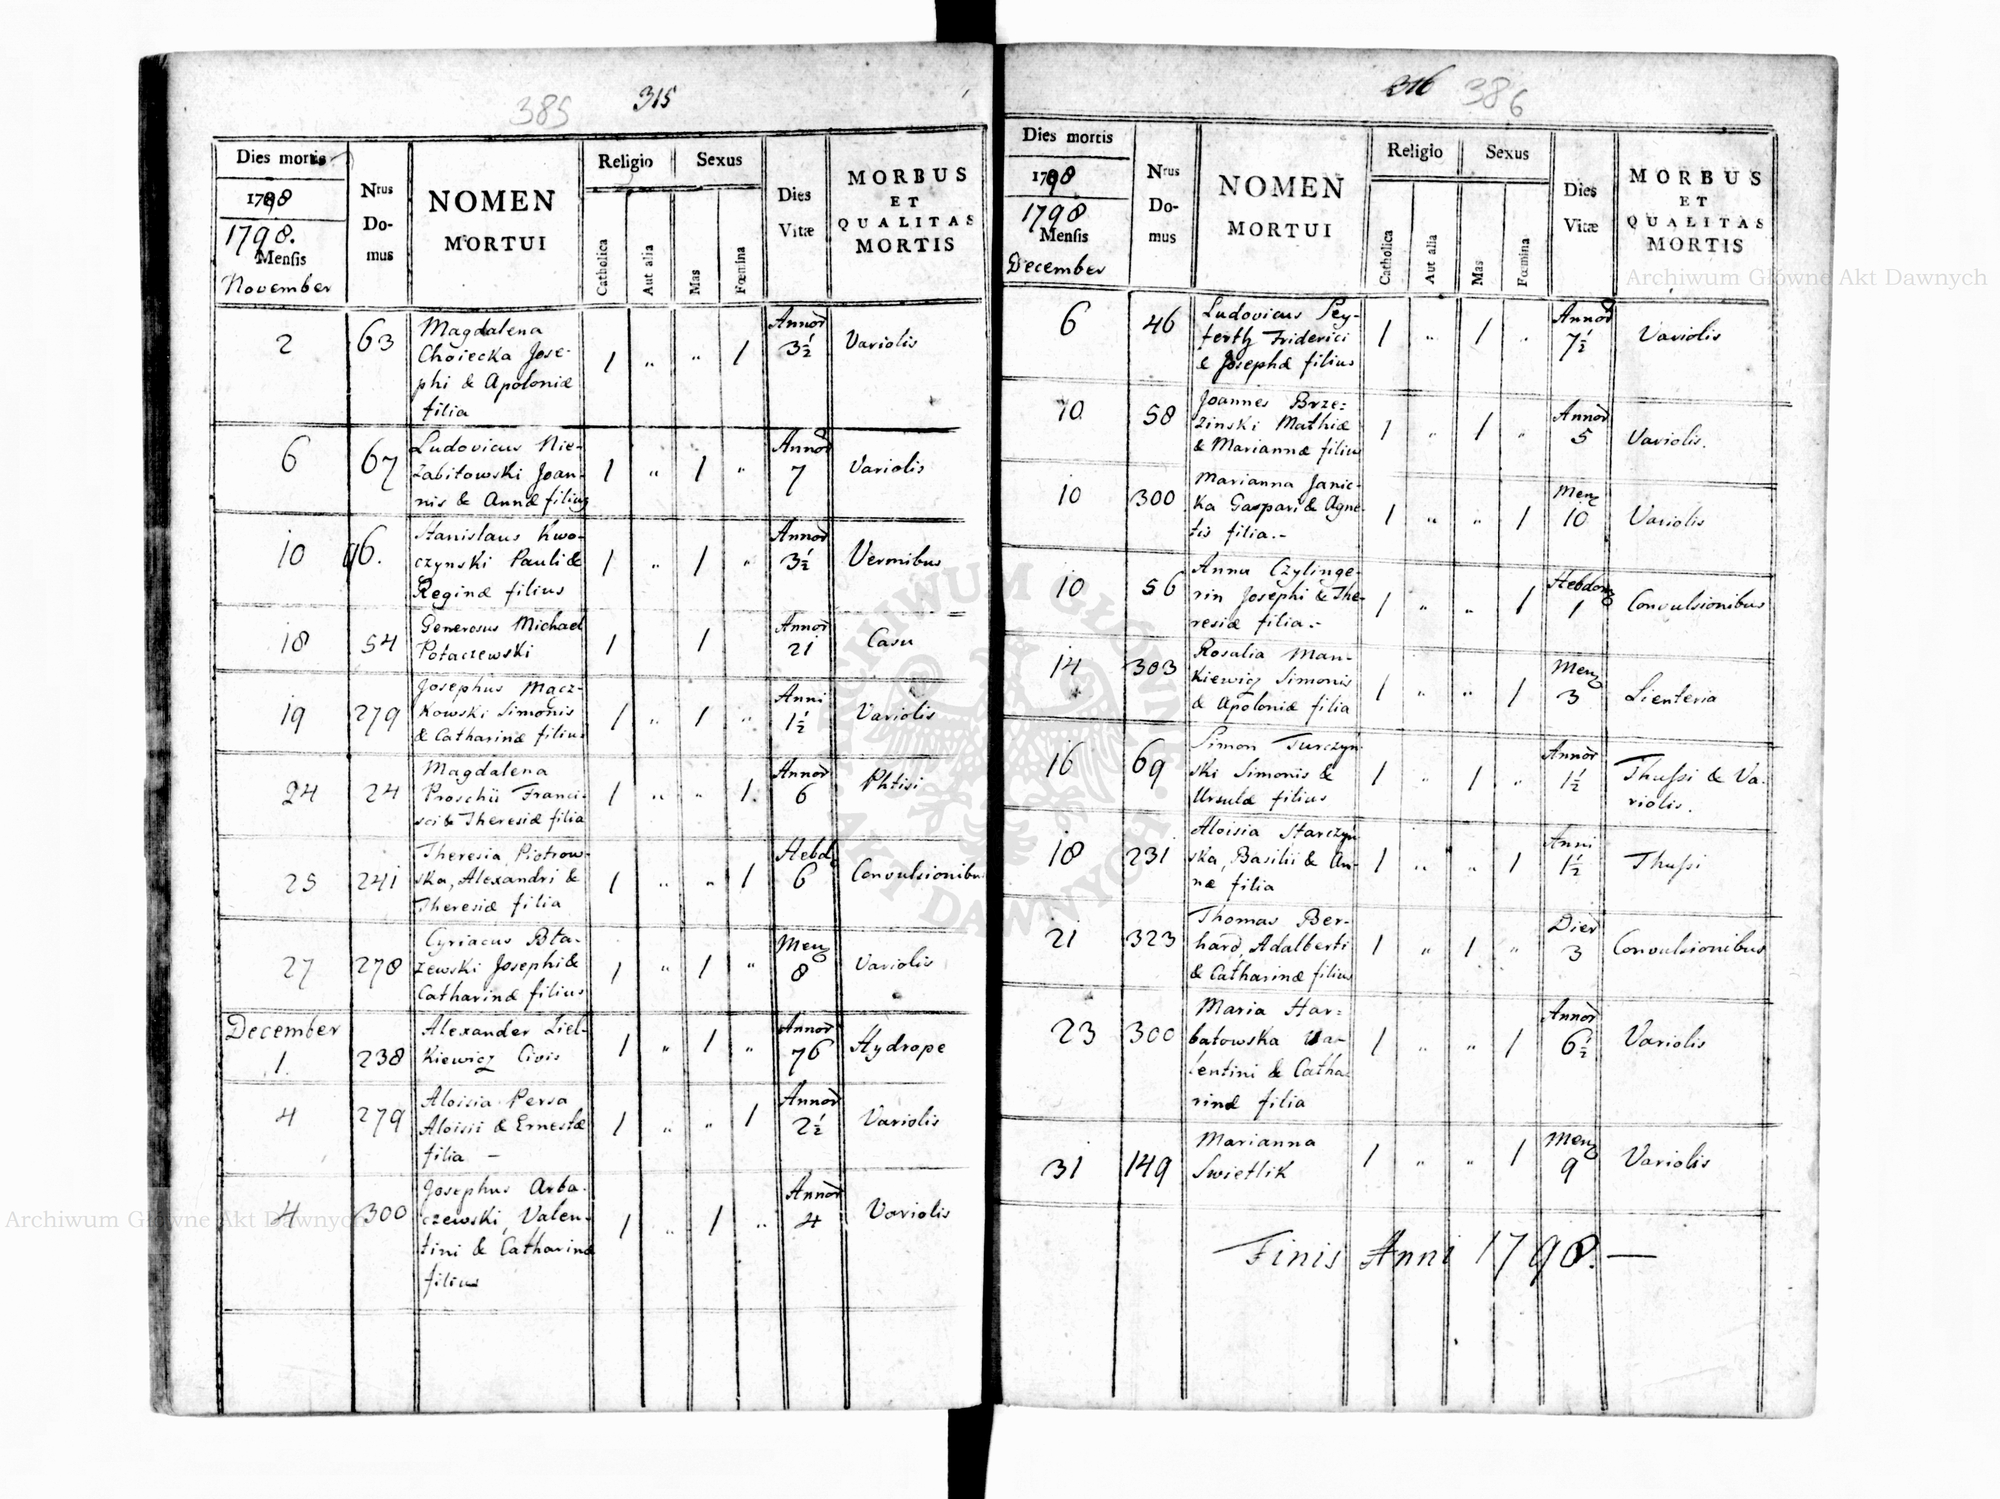 385 315
Dies mortis
1798
1798.
Mensis
November
Nrus
Do-
mus
NOMEN
MORTUI
Religio
Catholica
Aut alia
Sexus
Mas
Fœmina
Dies
Vitæ
MORBUS
ET
QUALITAS
MORTIS
2 63 Magdalena
Choiecka Jose-
phi & Apoloniæ
filia
1 " " 1 Annor 3½ Variolis
6 67 Ludovicus Nie-
zabitowski Joan-
nis & Annæ filius
1 " 1 " Annor 7 Variolis
10 96. Stanislaus Kwo-
czynski Pauli &
Reginæ filius
1 " 1 " Annor 3½ Vermibus
18 54 Generosus Michael
Potaczewski
1 1 Annor 21 Casu
19 279 Josephus Mącz-
kowski Simonis
& Catharinæ filius
1 " 1 " Anni 1½ Variolis
24 24 Magdalena
Proschü Franci-
sci & Theresiæ filia
1 " " 1 Annor 6 Phtisi
25 241 Theresia Piotrow-
ska, Alexandri &
Theresiæ filia
1 " " 1 Hebd. 6 Convulsionibus
27 278 Cyriacus Bła-
zewski Josephi &
Catharinæ filius
1 " 1 " Menz 8 Variolis
December
1. 238 Alexander Ziel-
kiewicz Civis
1 " 1 " Annor 76 Hydrope
4 279 Aloisia Persa
Aloisii & Ernestæ
filia —
1 " " 1 Annor 2½ Variolis
4 300 Josephus Arba-
czewski, Valen-
tini & Catharinæ
filius
1 " 1 " Annor 4 Variolis
316 386
Dies mortis
1798
1798
Mensis
December
Nrus
Do-
mus
NOMEN
MORTUI
Religio
Catholica
Aut alia
Sexus
Mas
Fœmina
Dies
Vitæ
MORBUS
ET
QUALITAS
MORTIS
6 46 Ludovicus Sey-
ferth Friderici
& Josephæ filius
1 " 1 " Annor 7½ Variolis
10 58 Joannes Brze-
zinski Mathiæ
& Mariannæ filius
1 " 1 " Annor 5 Variolis.
10 300 Marianna Janic-
ka Gaspari & Agne-
tis filia.-
1 " " 1 Menz 10 Variolis
10 56 Anna Czylinge-
rin Josephi & The-
resiæ filia.-
1 " " 1 Hebdom 1 Convulsionibus
14 303 Rosalia Man-
kiewicz Simonis
& Apoloniæ filia
1 " " 1 Menz 3 Lienteria
16 69 Simon Turczyn-
ski Simonis &
Ursulæ filius
1 " 1 " Annor 1½ Thussi & Va-
riolis.
18 231 Aloisia Starczyn-
ska, Basilii & An-
næ filia
1 " " 1 Anni 1½ Thussi
21 323 Thomas Ber-
hard, Adalberti
& Catharinæ filius
1 " 1 " Dier 3 Convulsionibus
23 300 Maria Har-
batowska Va-
lentini & Catha-
rinæ filia
1 " " 1 Annor 6½ Variolis
31 149 Marianna
Swietlik
1 " " 1 Menz 9 Variolis
Finis Anni 1798. —
Archiwum Główne Akt Dawnych
Archiwum Główne Akt Dawnych
ARCHIWUM GŁÓWNE AKT DAWNYCH